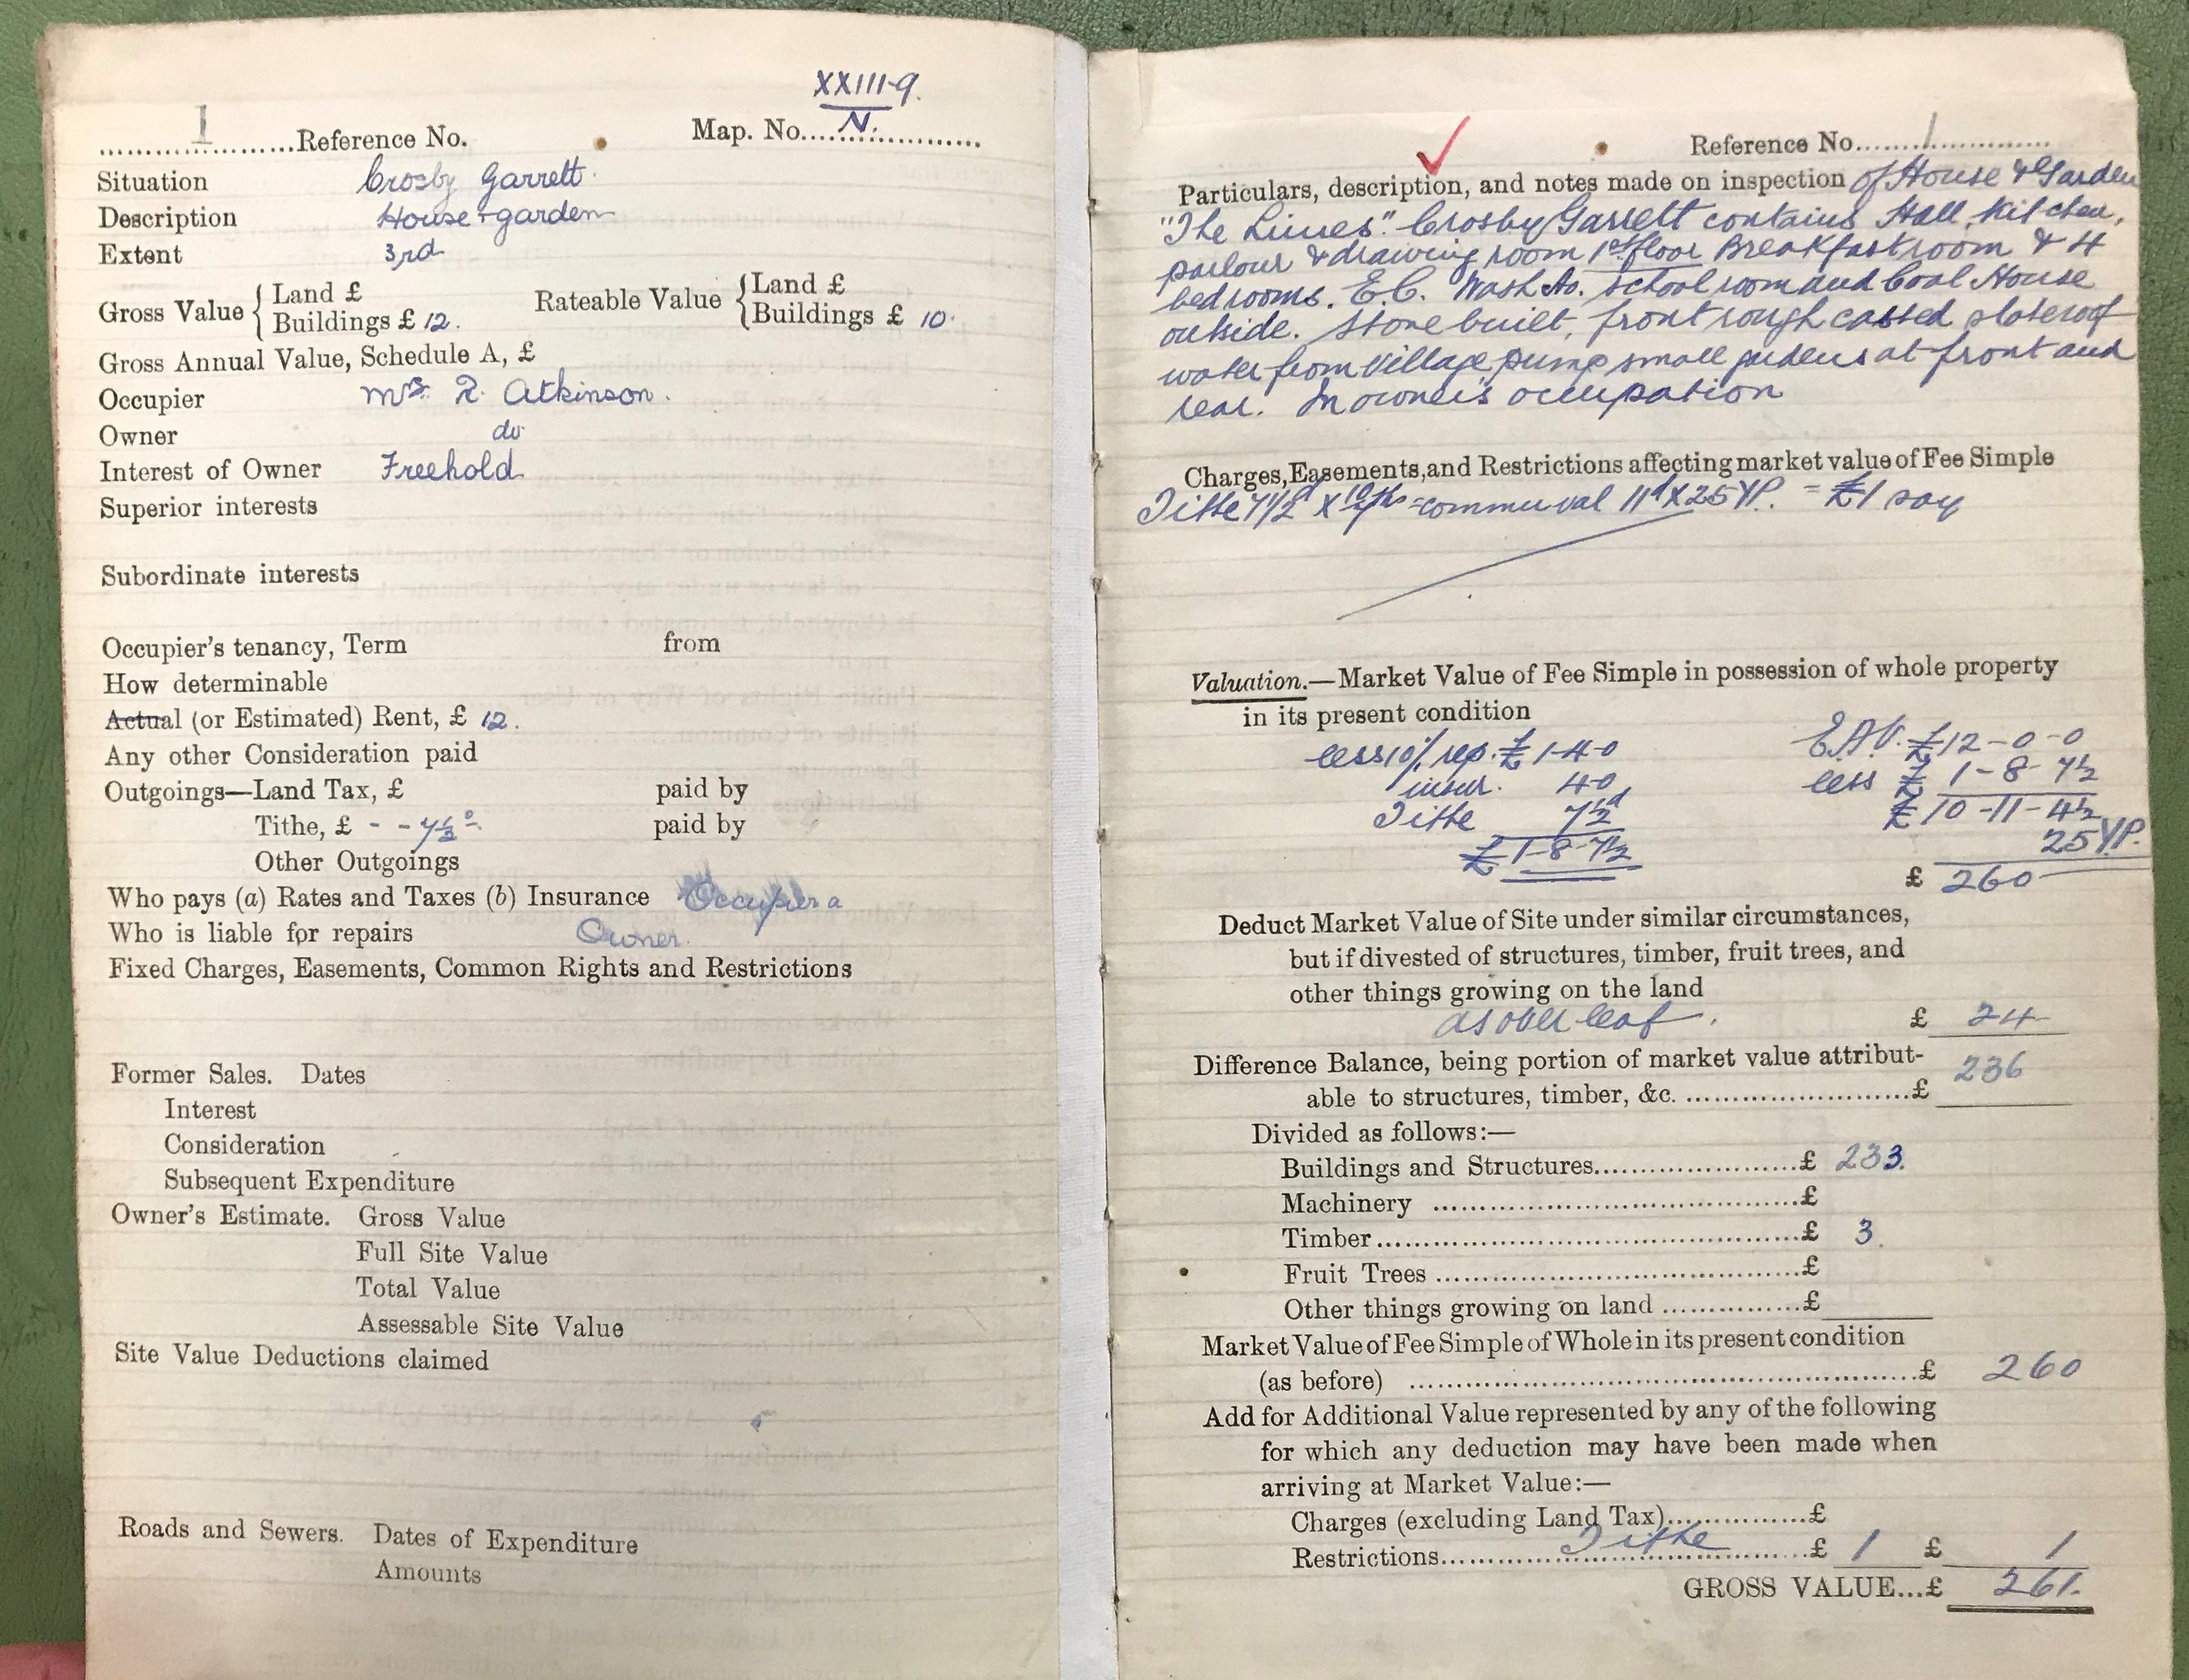 XXIII-9.
N.
1 Reference No. Map. No.
Situation Crosby Garrett.
Description House + garden
Extent 3rd
Gross Value { Land £ Rateable Value { Land £
Buildings £ 12. Buildings £ 10.
Gross Annual Value, Schedule A, £
Occupier Mrs. R. Atkinson.
Owner do
Interest of Owner Freehold
Superior interests
Subordinate interests
Occupier's tenancy, Term from
How determinable
Actual (or Estimated) Rent, £ 12.
Any other Consideration paid
Outgoings—Land Tax, £ paid by
Tithe, £ - - 7½ paid by
Other Outgoings
Who pays (a) Rates and Taxes (b) Insurance Occupier a
Who is liable for repairs Owner.
Fixed Charges, Easements, Common Rights and Restrictions
Former Sales. Dates
Interest
Consideration
Subsequent Expenditure
Owner's Estimate. Gross Value
Full Site Value
Total Value
Assessable Site Value
Site Value Deductions claimed
Roads and Sewers. Dates of Expenditure
Amounts
Reference No. 1
Particulars, description, and notes made on inspection of House & Garden
"The Limes". Crosby Garrett contains Hall, Kitchen,
parlour & drawing room 1st floor Breakfast room & 4
bedrooms. E.C. Wash Ho. School room and Coal House
outside. Stone built, front rough casted slate roof
water from Village pump small gardens at front and
rear. In owner's occupation
Charges, Easements, and Restrictions affecting market value of Fee Simple
Tithe 7½d X = commu val 11d X 25 YP. = £1 say
Valuation.—Market Value of Fee Simple in possession of whole property
in its present condition
less 10% rep. £ 1-4-0 E.A.V. £12-0-0
insur. 4-0 less £ 1-8-7½
Tithe 7½d £10-11-4½
£ 1-8-7½ 25 YP.
£ 260
Deduct Market Value of Site under similar circumstances,
but if divested of structures, timber, fruit trees, and
other things growing on the land
as over leaf. £ 24
Difference Balance, being portion of market value attribut-
able to structures, timber, &c. £ 236
Divided as follows:—
Buildings and Structures £ 233.
Machinery £
Timber £ 3.
Fruit Trees £
Other things growing on land £
Market Value of Fee Simple of Whole in its present condition
(as before) £ 260
Add for Additional Value represented by any of the following
for which any deduction may have been made when
arriving at Market Value:—
Charges (excluding Land Tax) £
Restrictions Tithe £ 1 £ 1
GROSS VALUE...£ 261.